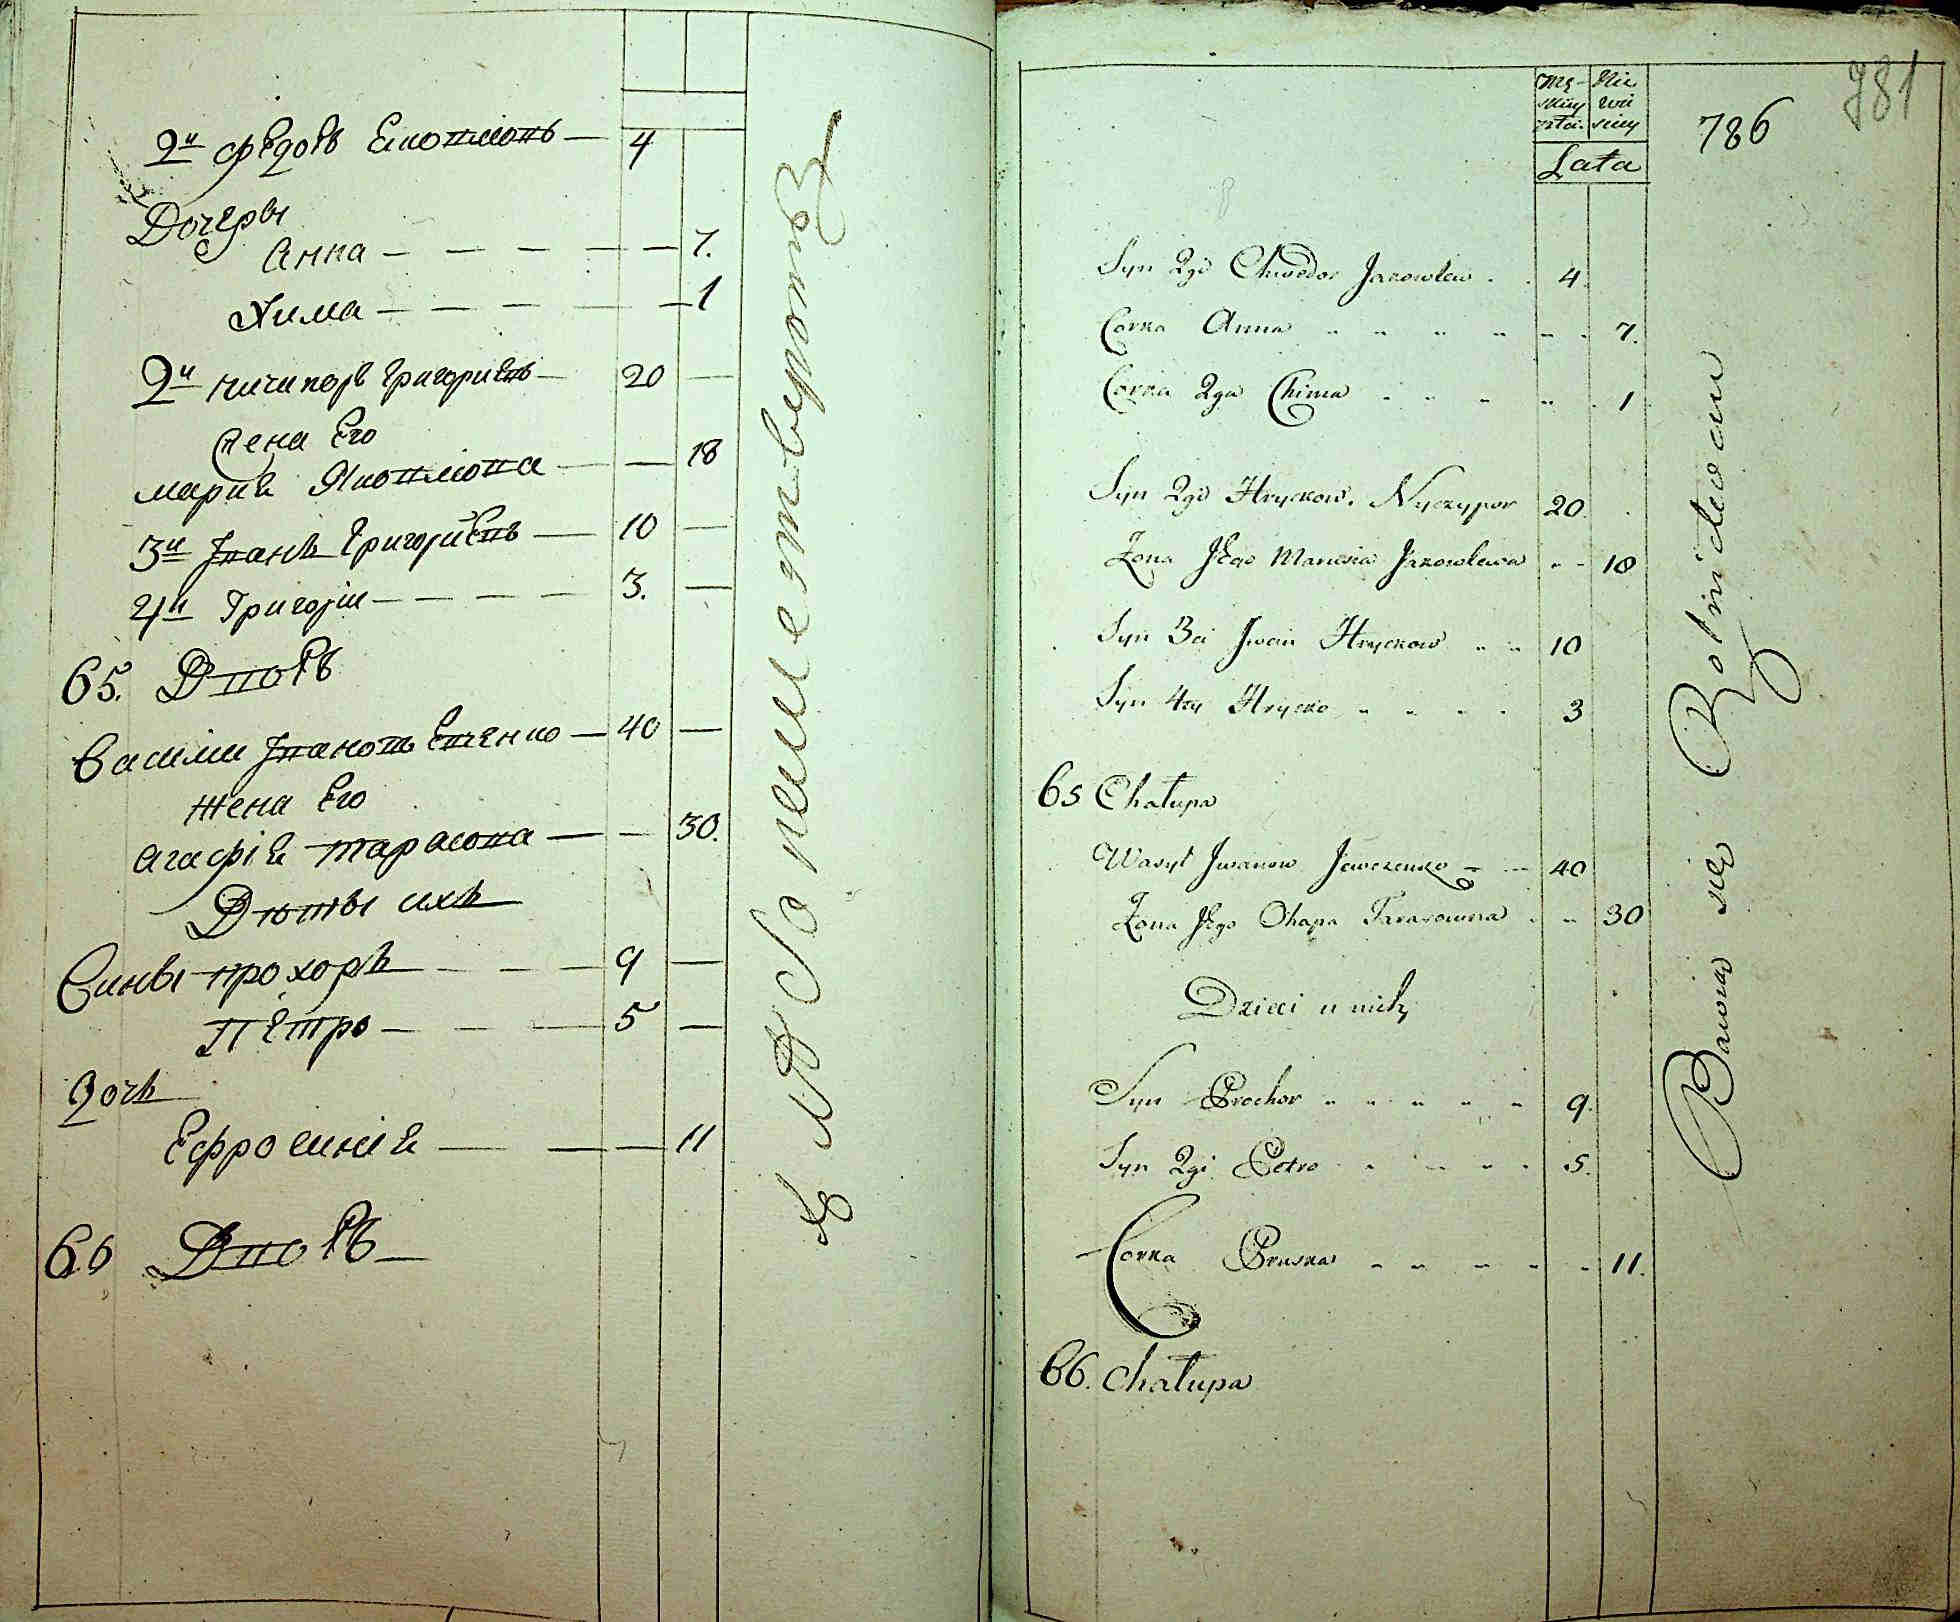 2й Федоръ Яковлювъ — 4
Дочеры
Анна — — — — — — 7.
Хима — — — — — — 1
2й Ничипоръ Григориевъ — 20 —
жена Его
Мария Яковлювна — — 18
3й Іванъ Григориевъ — 10 —
4й Григорій — — — — 3. —
65. Дворъ
Василій Івановъ Евченко — 40 —
жена Его
Агафія Тарасовна — — 30.
Дѣты ихъ
Сины Прохоръ — — — 9 —
Петро — — — 5 —
Дочь
Ефросинія — — — 11
66 Дворъ —
781
786
Męskiey
Niewieściey
Lata
Syn 2gi Chwedor Jakowlew . . 4.
Corka Anna . . . . . . 7.
Corka 2ga Chima . . . . . . 1
Syn 2gi Hryckow. Nyczypor 20.
Zona Jego Marusia Jakowlewa . . 18
Syn 3ci Jwan Hryckow . . 10
Syn 4ty Hrycko . . . . 3
65 Chałupa
Wasyl Jwanow Jewczenko . . 40
Zona Jego Ohapa Tarasowna . . 30
Dzieci u nich,
Syn Prochor . . . . . 9.
Syn 2gi Petro . . . . . 5.
Corka Pruska . . . . . 11.
66. Chałupa
Bawią się Rolnictwem